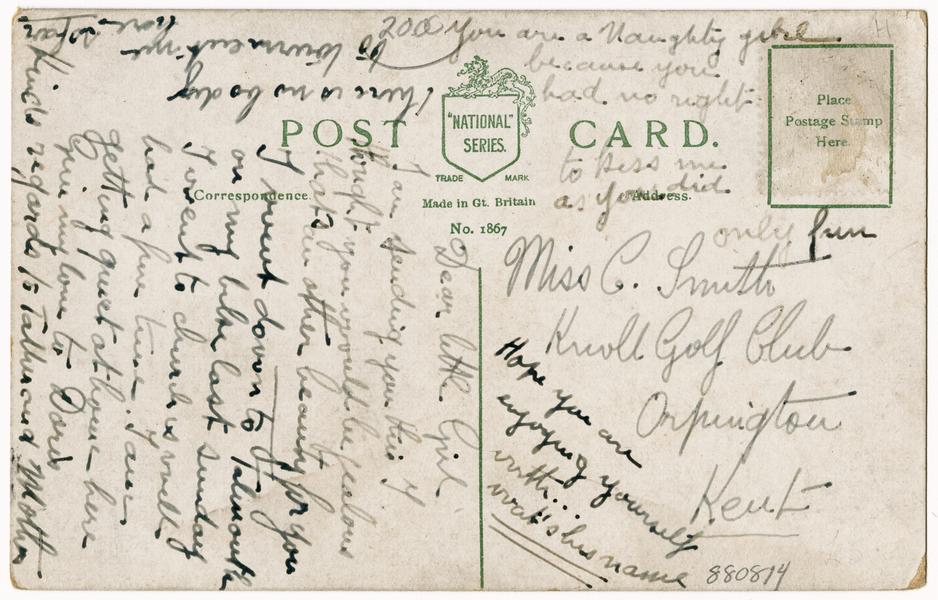 200 You are a Naughty girl
because you
had no right
to kiss me
as you did
only fun
POST CARD.
"NATIONAL"
SERIES.
TRADE MARK
Made in Gt. Britain
No. 1867
Correspondence.
Address.
Place
Postage Stamp
Here.
Dear little Girl
I am sending you this if
thought you would be jealous
that's an other beauty for you
I went down to Falmouth
on my bike last Sunday
I went to church as well
had a fine time. I am
getting quiet at home here
Give my love to Doris
Kinds regards to Father and Mother
there is no body
to torment me
here
Miss C. Smith
Knoll Golf Club
Orpington
Kent
Hope you are
enjoying yourself
with
wat's his name
880814
H